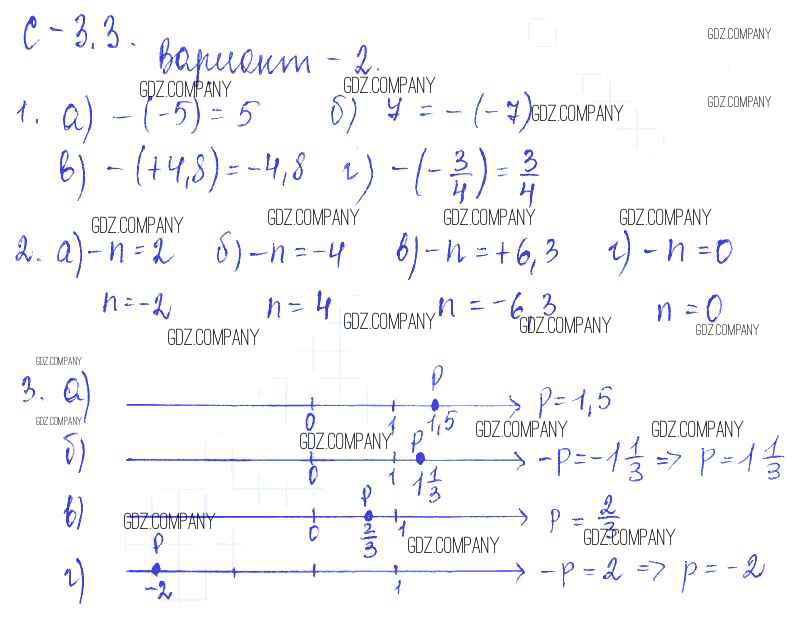 С-3.3.
GDZ.COMPANY
Вариант-2.
GDZ.COMPANY GDZ.COMPANY GDZ.COMPANY
1. а) -(-5) = 5 б) 7 = -(-7) GDZ.COMPANY
в) -(+4,8) = -4,8 г) -(-3/4) = 3/4
GDZ.COMPANY GDZ.COMPANY GDZ.COMPANY GDZ.COMPANY
2. а) -n = 2 б) -n = -4 в) -n = +6,3 г) -n = 0
n = -2 n = 4 n = -6,3 n = 0
GDZ.COMPANY GDZ.COMPANY GDZ.COMPANY GDZ.COMPANY
GDZ.COMPANY
3. а) P p = 1,5
0 1 1,5
GDZ.COMPANY GDZ.COMPANY GDZ.COMPANY GDZ.COMPANY
б) P -p = -1 1/3 => p = 1 1/3
0 1 1 1/3
в) P p = 2/3
GDZ.COMPANY
0 2/3 1
GDZ.COMPANY GDZ.COMPANY
г) P -p = 2 => p = -2
-2 1